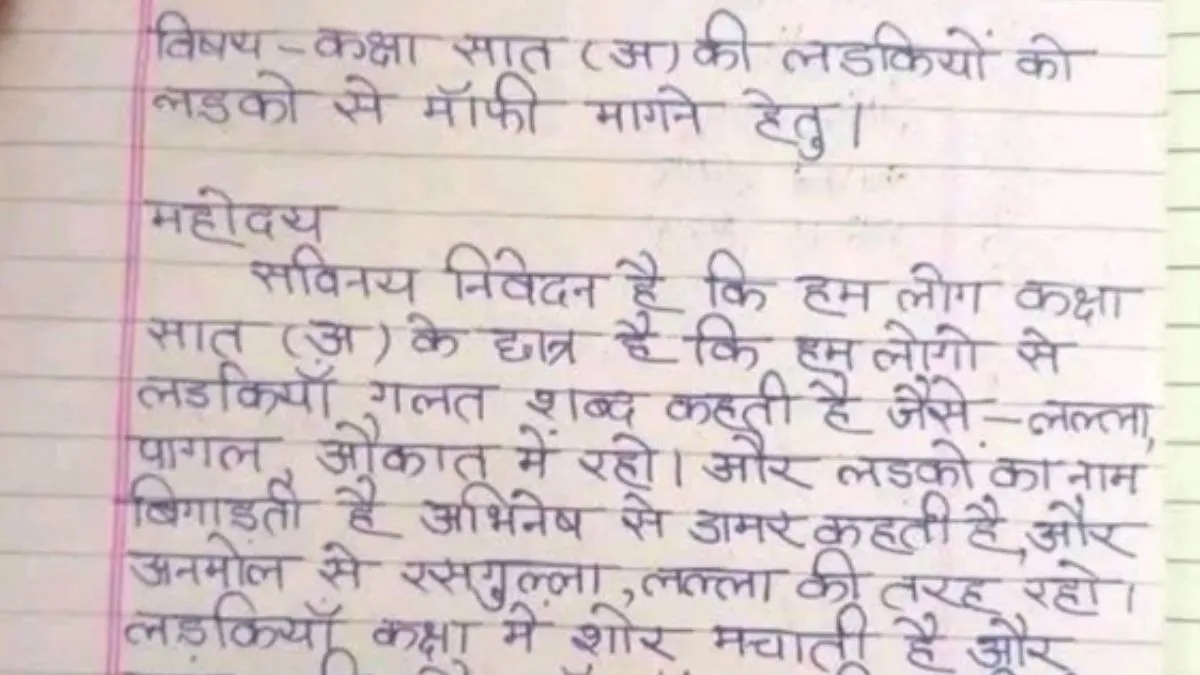 विषय - कक्षा सात (अ) की लडकियों को
लड़को से मॉफी मागने हेतु।
महोदय
सविनय निवेदन है कि हम लोग कक्षा
सात (अ) के छात्र है कि हम लोगो से
लडकियाँ गलत शब्द कहती है जैसे - लल्ला,
पागल, औकात में रहो। और लडकों का नाम
बिगाड़ती है अभिनेष से डामर कहती है, और
अनमोल से रसगुल्ला, लल्ला की तरह रहो।
लड़कियाँ कक्षा में शोर मचाती है और